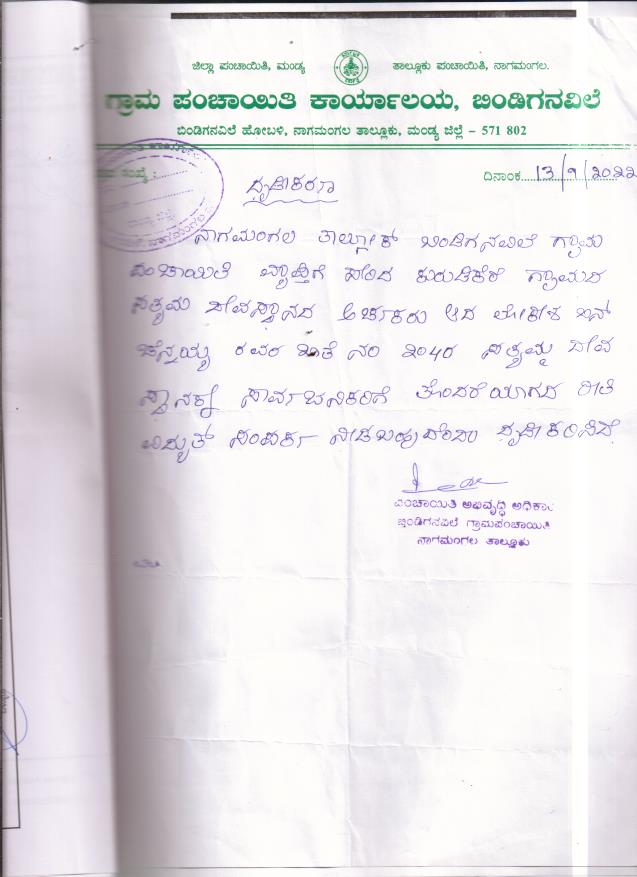 ಜಿಲ್ಲಾ ಪಂಚಾಯಿತಿ, ಮಂಡ್ಯ ತಾಲ್ಲೂಕು ಪಂಚಾಯಿತಿ, ನಾಗಮಂಗಲ.
ಗ್ರಾಮ ಪಂಚಾಯಿತಿ ಕಾರ್ಯಾಲಯ, ಬಿಂಡಿಗನವಿಲೆ
ಬಿಂಡಿಗನವಿಲೆ ಹೋಬಳಿ, ನಾಗಮಂಗಲ ತಾಲ್ಲೂಕು, ಮಂಡ್ಯ ಜಿಲ್ಲೆ - 571 802
ದಿನಾಂಕ 13/9/೨೦೨೨
ದೃಢೀಕರಣ
ನಾಗಮಂಗಲ ತಾಲ್ಲೂಕ್ ಬಿಂಡಿಗನವಿಲೆ ಗ್ರಾಮ
ಪಂಚಾಯಿತಿ ವ್ಯಾಪ್ತಿಗೆ ಗ್ರಾಮದ
ದೇವಸ್ಥಾನದ ಅರ್ಚಕರು ಆದ ಲೋಕೇಶ ಬಿನ್
ಚೆನ್ನಯ್ಯ ರವರ ಖಾತೆ ನಂ ದೇವ
ಸ್ಥಾನಕ್ಕೆ ಸಾರ್ವಜನಿಕರಿಗೆ ತೊಂದರೆಯಾಗದ ರೀತಿ
ವಿದ್ಯುತ್ ಸಂಪರ್ಕ ನೀಡಬಹುದೆಂದು ದೃಢೀಕರಿಸಿದೆ
ಪಂಚಾಯಿತಿ ಅಭಿವೃದ್ಧಿ ಅಧಿಕಾರಿ
ಬಿಂಡಿಗನವಿಲೆ ಗ್ರಾಮಪಂಚಾಯಿತಿ
ನಾಗಮಂಗಲ ತಾಲ್ಲೂಕು